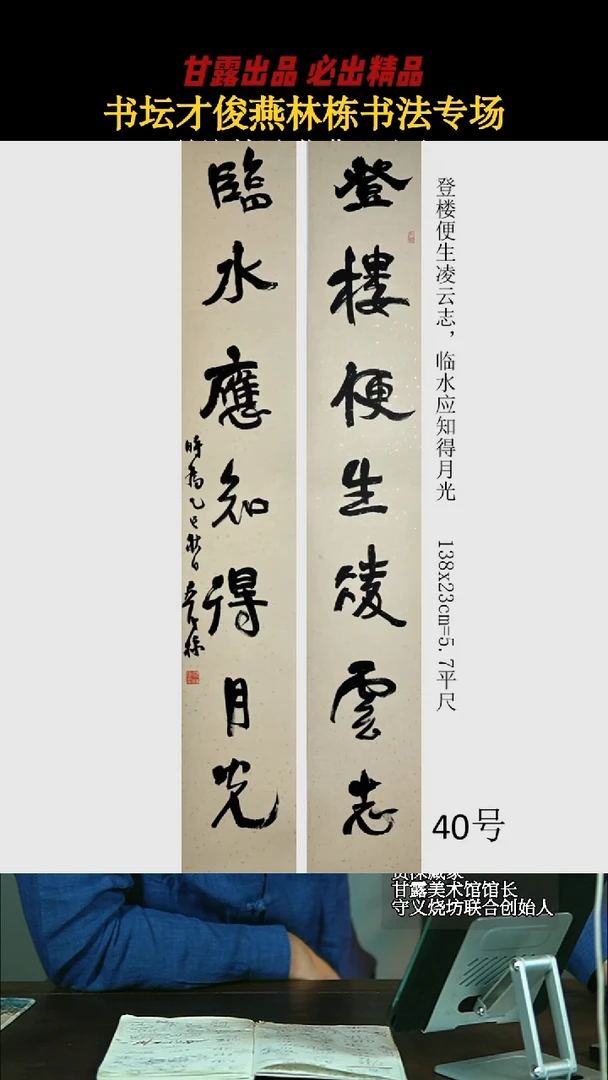 甘露出品 必出精品
书坛才俊燕林栋书法专场
登樓便生凌雲志
臨水應知得月光
時爲乙巳秋日
登楼便生凌云志，临水应知得月光
138x23cm=5.7平尺
40号
甘露美术馆馆长
守义烧坊联合创始人